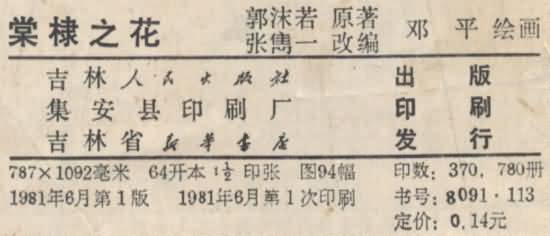 棠棣之花 郭沫若 原著 邓 平 绘画
张雋一 改编
吉林人民出版社 出版
集安县印刷厂 印刷
吉林省新华书店 发行
787×1092毫米 64开本 1½ 印张 图94幅 印数：370,780册
1981年6月第1版 1981年6月第1次印刷 书号：8091·113
定价：0.14元